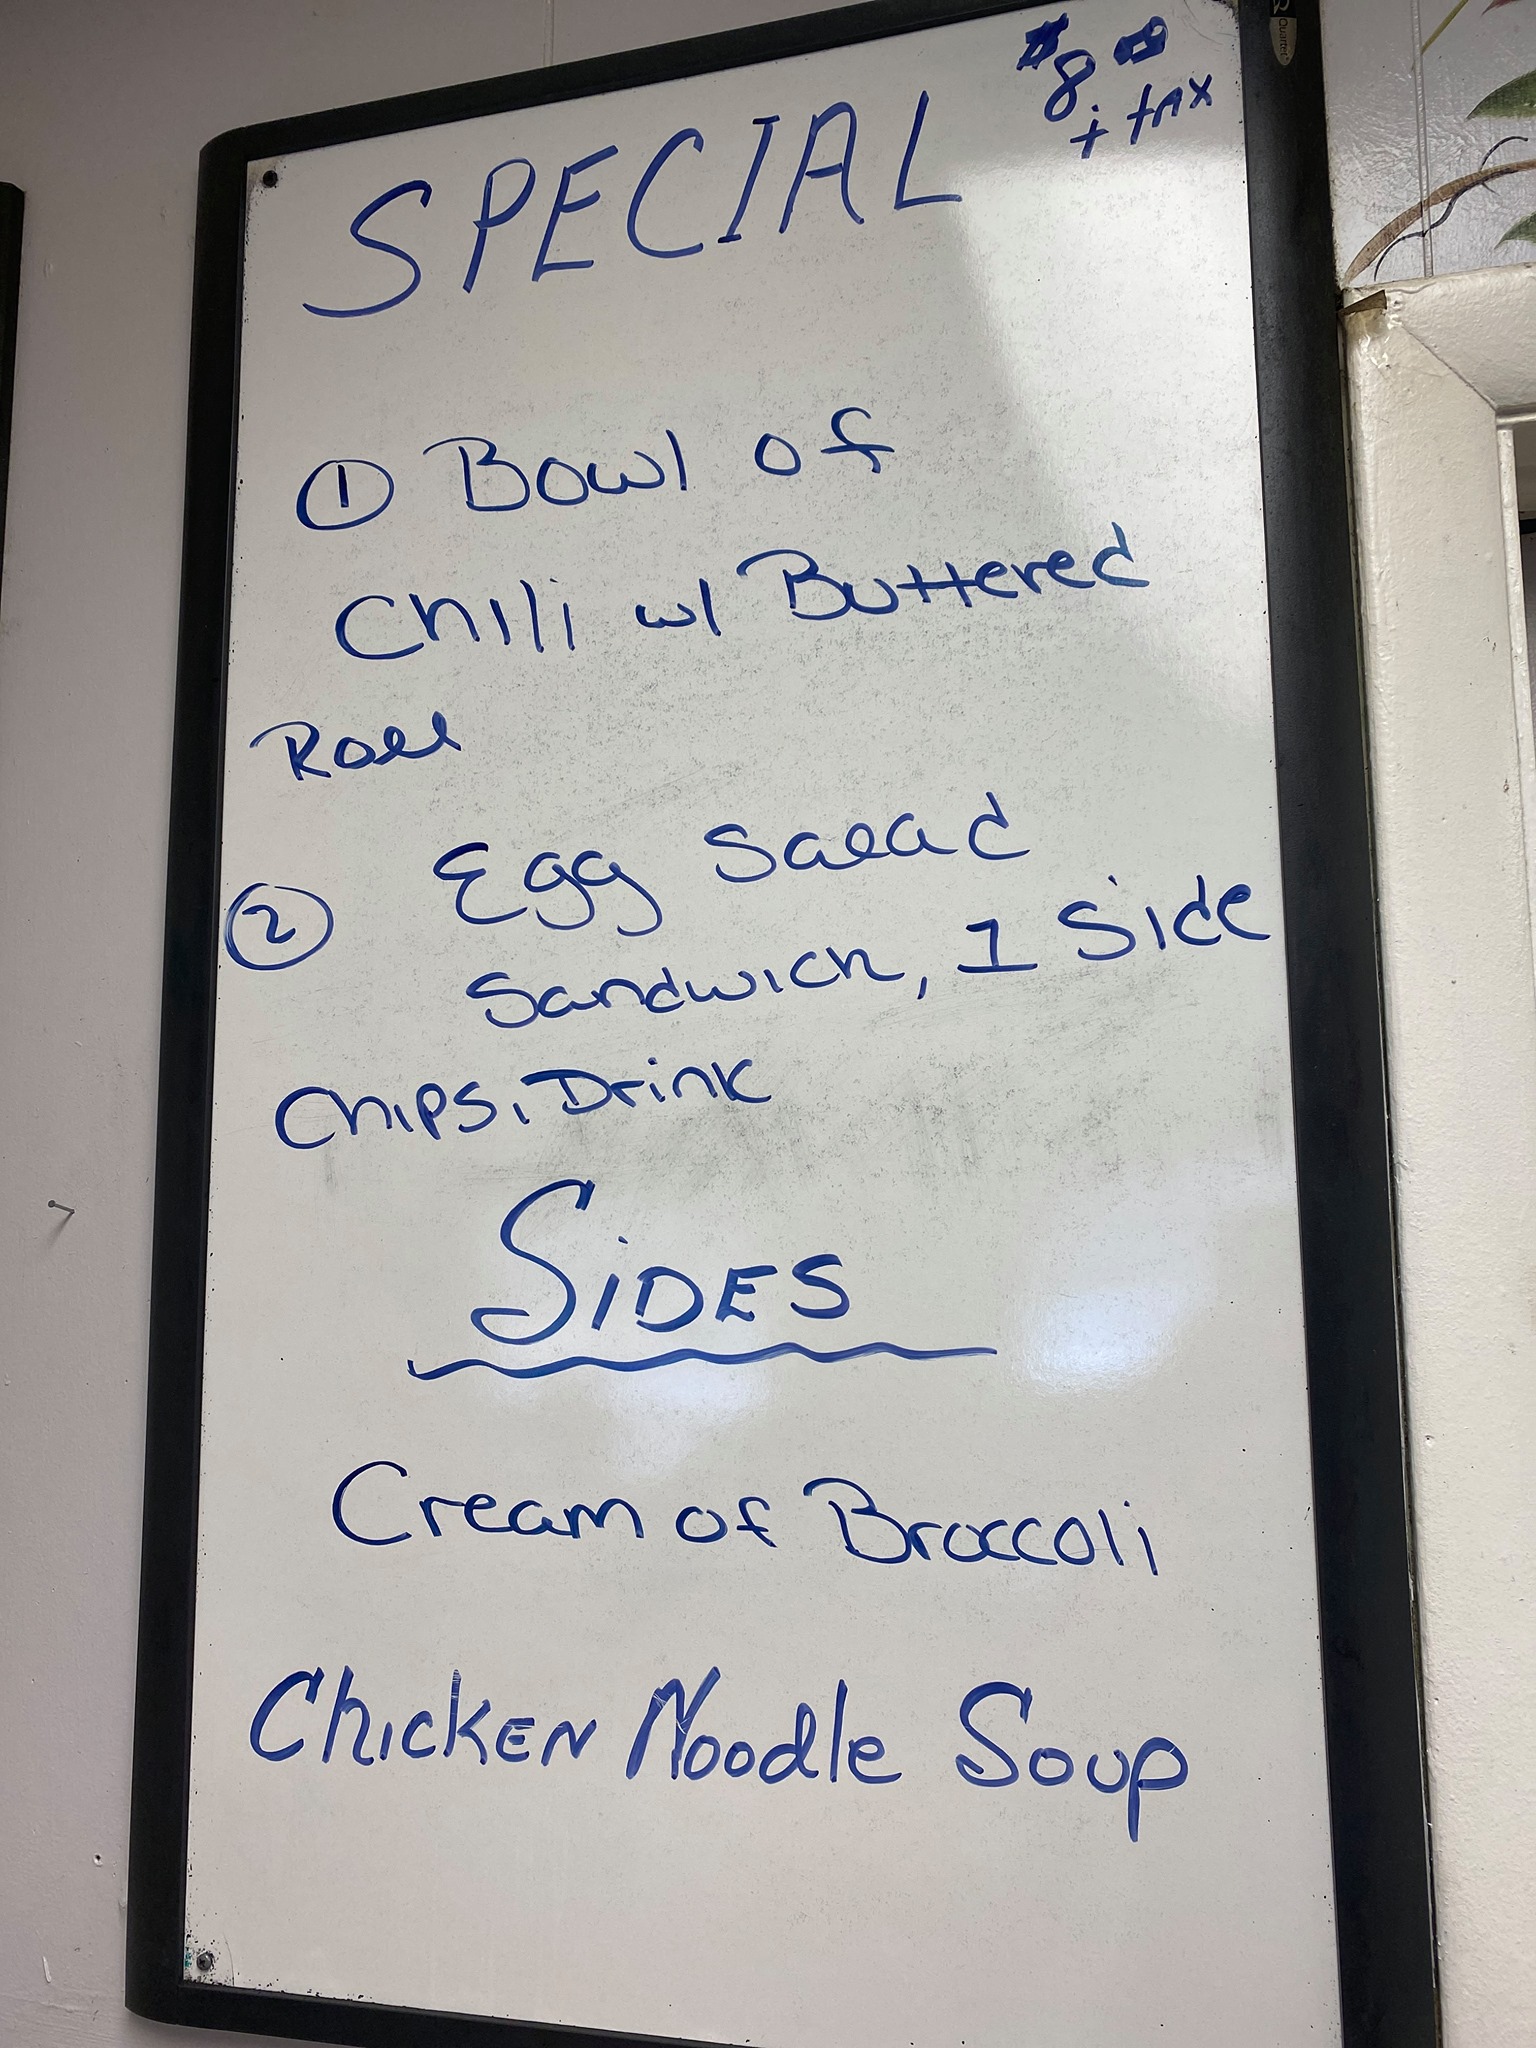 $8.00
+ tax
SPECIAL
① Bowl of
Chili w/ Buttered
Roll
② Egg Salad
Sandwich, 1 Side
Chips, Drink
SiDES
Cream of Broccoli
Chicken Noodle Soup
Quartet